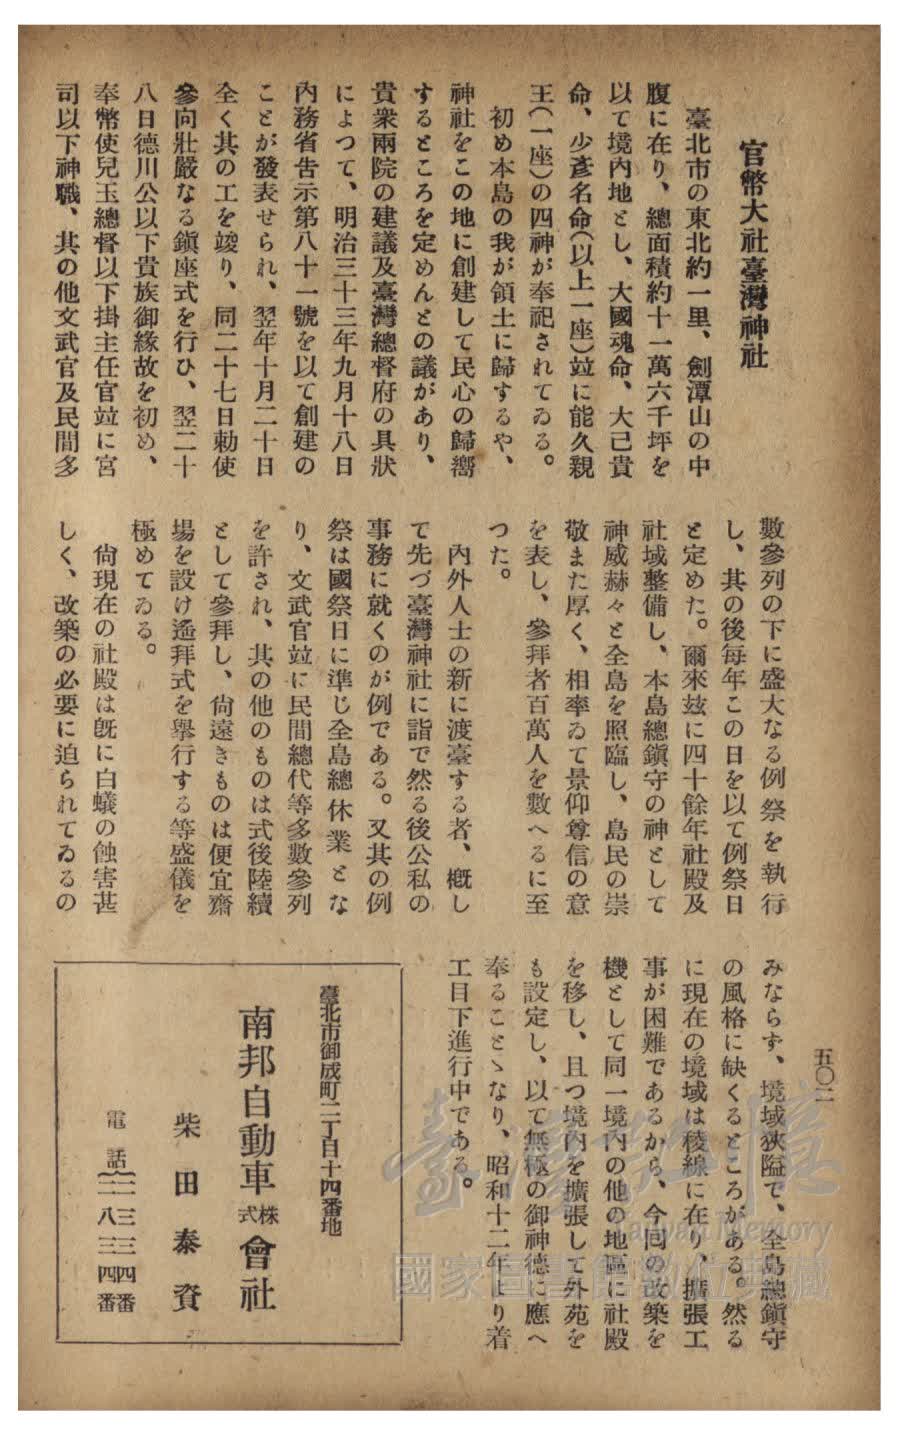 官幣大社臺灣神社
臺北市の東北約一里、劍潭山の中
腹に在り、總面積約十一萬六千坪を
以て境內地とし、大國魂命、大己貴
命、少彥名命(以上一座)竝に能久親
王(一座)の四神が奉祀されてゐる。
初め本島の我が領土に歸するや、
神社をこの地に創建して民心の歸嚮
するところを定めんとの議があり、
貴衆兩院の建議及臺灣總督府の具狀
によつて、明治三十三年九月十八日
內務省告示第八十一號を以て創建の
ことが發表せられ、翌年十月二十日
全く其の工を竣り、同二十七日勅使
參向壯嚴なる鎭座式を行ひ、翌二十
八日德川公以下貴族御緣故を初め、
奉幣使兒玉總督以下掛主任官竝に宮
司以下神職、其の他文武官及民間多
數參列の下に盛大なる例祭を執行
し、其の後每年この日を以て例祭日
と定めた。爾來玆に四十餘年社殿及
社域整備し、本島總鎭守の神として
神威赫々と全島を照臨し、島民の崇
敬また厚く、相率ゐて景仰尊信の意
を表し、參拜者百萬人を數へるに至
つた。
內外人士の新に渡臺する者、槪し
て先づ臺灣神社に詣で然る後公私の
事務に就くのが例である。又其の例
祭は國祭日に準じ全島總休業とな
り、文武官竝に民間總代等多數參列
を許され、其の他のものは式後陸續
として參拜し、尙遠きものは便宜齋
場を設け遙拜式を擧行する等盛儀を
極めてゐる。
尙現在の社殿は旣に白蟻の蝕害甚
しく、改築の必要に迫られてゐるの
みならず、境域狹隘で、全島總鎭守
の風格に缺くるところがある。然る
に現在の境域は稜線に在り、擴張工
事が困難であるから、今囘の改築を
機として同一境內の他の地區に社殿
を移し、且つ境內を擴張して外苑を
も設定し、以て無極の御神德に應へ
奉ることゝなり、昭和十二年より着
工目下進行中である。
五〇二
臺北市御成町二丁目十四番地
南邦自動車株式會社
柴田泰資
電話{三三四番
二八三四番
臺灣記憶
Taiwan Memory
國家圖書館數位典藏